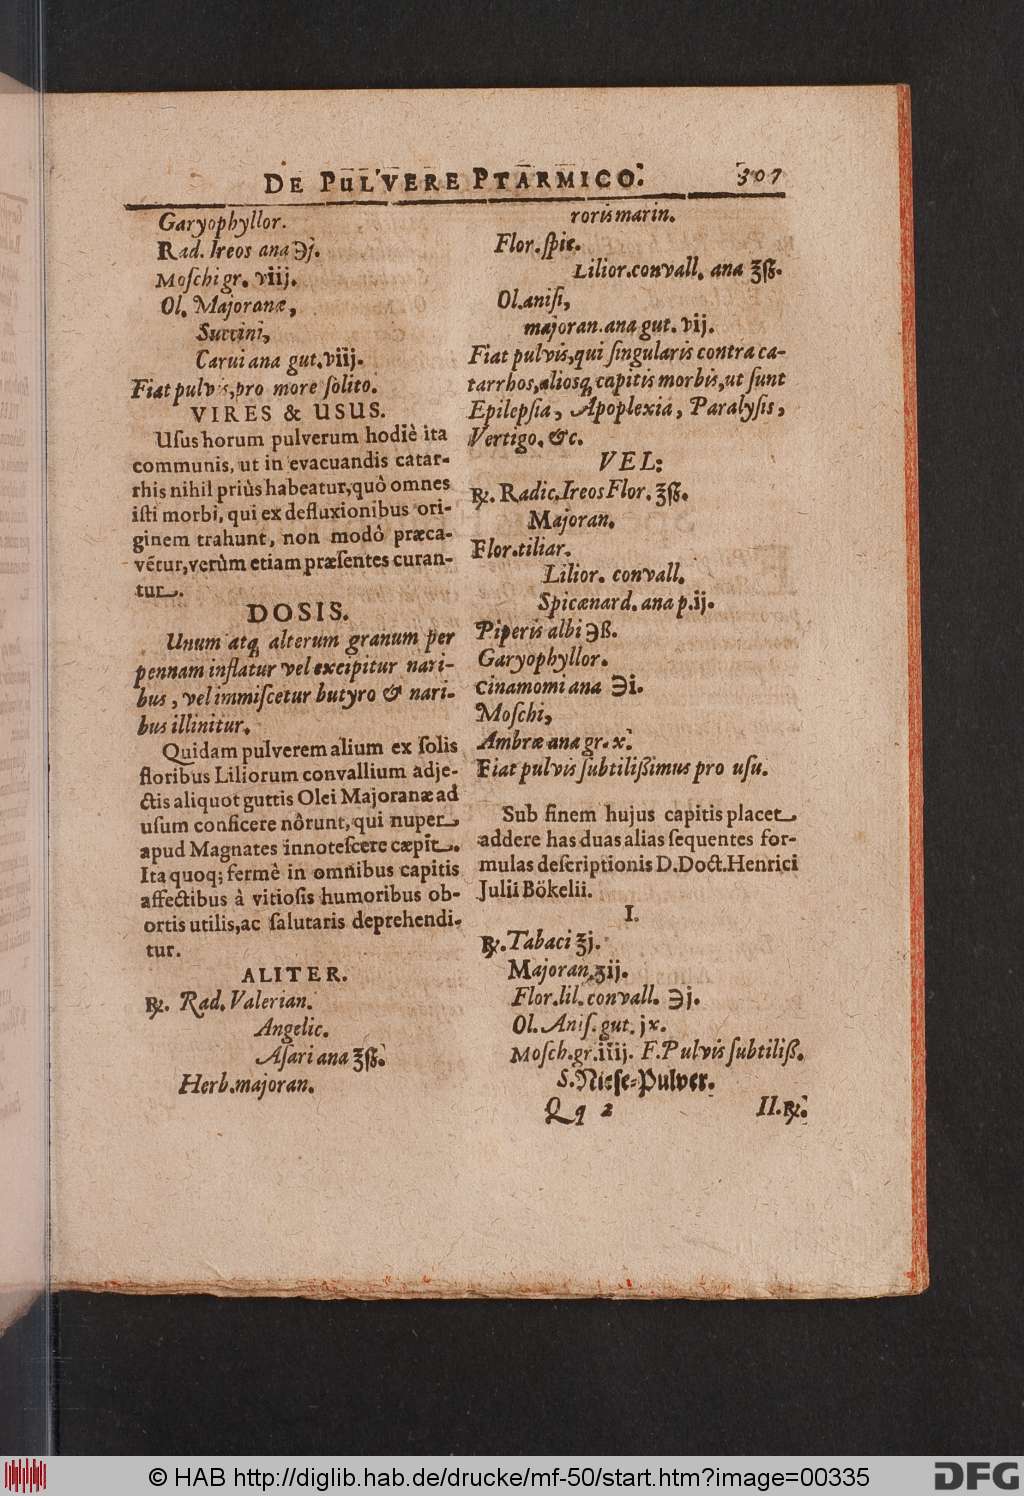 DE PULVERE PTARMICO. 307
Garyophyllor.
Rad. Ireos ana ℈j.
Moſchi gr. viij.
Ol. Majoranæ,
Succini,
Carui ana gut. viij.
Fiat pulvis, pro more ſolito.
VIRES & USUS.
Uſus horum pulverum hodiè ita
communis, ut in evacuandis catar-
rhis nihil priùs habeatur, quô omnes
iſti morbi, qui ex defluxionibus ori-
ginem trahunt, non modô præca-
vētur, verùm etiam præſentes curan-
tur.
DOSIS.
Unum atq; alterum granum per
pennam inflatur vel excipitur nari-
bus, vel immiſcetur butyro & nari-
bus illinitur.
Quidam pulverem alium ex ſolis
floribus Liliorum convallium adje-
ctis aliquot guttis Olei Majoranæ ad
uſum conficere nôrunt, qui nuper
apud Magnates innoteſcere cæpit.
Ita quoq; fermè in omnibus capitis
affectibus à vitioſis humoribus ob-
ortis utilis, ac ſalutaris deprehendi-
tur.
ALITER.
℞. Rad. Valerian.
Angelic.
Aſari ana ʒſß.
Herb. majoran.
roris marin.
Flor. ſpic.
Lilior. convall. ana ʒſß.
Ol. aniſi,
majoran. ana gut. vij.
Fiat pulvis, qui ſingularis contra ca-
tarrhos, aliosq; capitis morbis, ut ſunt
Epilepſia, Apoplexia, Paralyſis,
Vertigo, &c.
VEL:
℞. Radic. Ireos Flor. ʒſß.
Majoran.
Flor. tiliar.
Lilior. convall.
Spicænard. ana p. ij.
Piperis albi ℈ß.
Garyophyllor.
Cinamomi ana ℈i.
Moſchi,
Ambræ ana gr. x.
Fiat pulvis ſubtilißimus pro uſu.
Sub finem hujus capitis placet
addere has duas alias ſequentes for-
mulas deſcriptionis D. Doct. Henrici
Julii Bökelii.
I.
℞. Tabaci ʒj.
Majoran. ʒij.
Flor. lil. convall. ℈j.
Ol. Aniſ. gut. jx.
Moſch. gr. iiij. F. Pulvis ſubtiliß.
S. Nieſe-Pulver.
Qq 2 II. ℞.
© HAB http://diglib.hab.de/drucke/mf-50/start.htm?image=00335 DFG